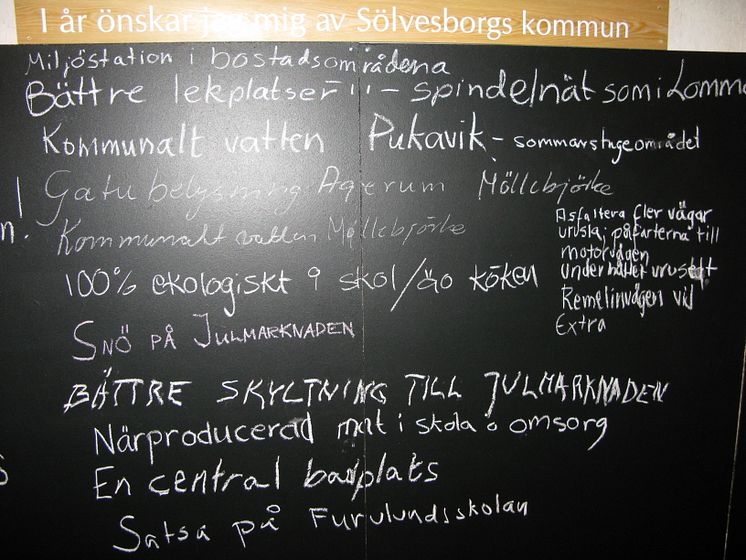 I år önskar jag mig av Sölvesborgs kommun
Miljöstation i bostadsområdena
Bättre lekplatser!! - spindelnät som i Lomma
Kommunalt vatten Pukavik - sommarstugeområdet
Gatubelysning Agerum Möllebjörke
n!
Kommunalt vatten Möllebjörke
Asfaltera fler vägar
urusla, påfarterna till
motorvägen
underhållet uruselt
Remelinvägen vid
Extra
100% ekologiskt i skol/äo köken
SNÖ PÅ JULMARKNADEN
BÄTTRE SKYLTNING TILL JULMARKNADEN
Närproducerad mat i skola o omsorg
En central badplats
Satsa på Furulundsskolan